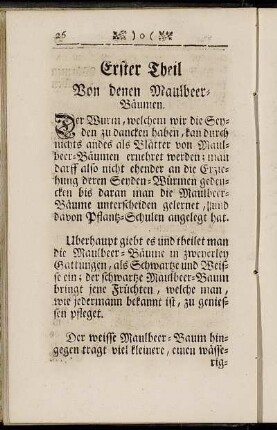 26 ) o (
Erster Theil
Von denen Maulbeer-
Bäumen.
Der Wurm, welchem wir die Sey-
den zu dancken haben, kan durch
nichts andes als Blätter von Maul-
beer-Bäumen ernehret werden: man
darff also nicht ehender an die Erzie-
hung deren Seyden-Würmen geden-
cken bis daran man die Maulbeer-
Bäume unterscheiden gelernet, und
davon Pflantz-Schulen angelegt hat.
Uberhaupt giebt es und theilet man
die Maulbeer-Bäume in zweyerley
Gattungen, als Schwartze und Weis-
se ein: der schwartze Maulbeer-Baum
bringt jene Früchten, welche man,
wie jedermann bekannt ist, zu genies-
sen pfleget.
Der weisse Maulbeer-Baum hin-
gegen tragt viel kleinere, einen wässe-
rig-